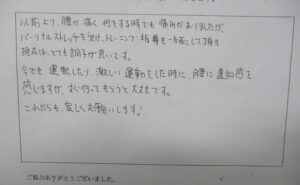 以前より、腰が痛く何をする時でも痛みがありましたが、
パーソナルストレッチを受け、トレーニング指導も一緒にして頂き
現在は、とても調子が良いです。
今でも運転したり、激しい運動をした時に腰に違和感を
感じますが、すぐ行ってもらうと大丈夫です。
これからも、宜しくお願いします!
ご協力ありがとうございました。